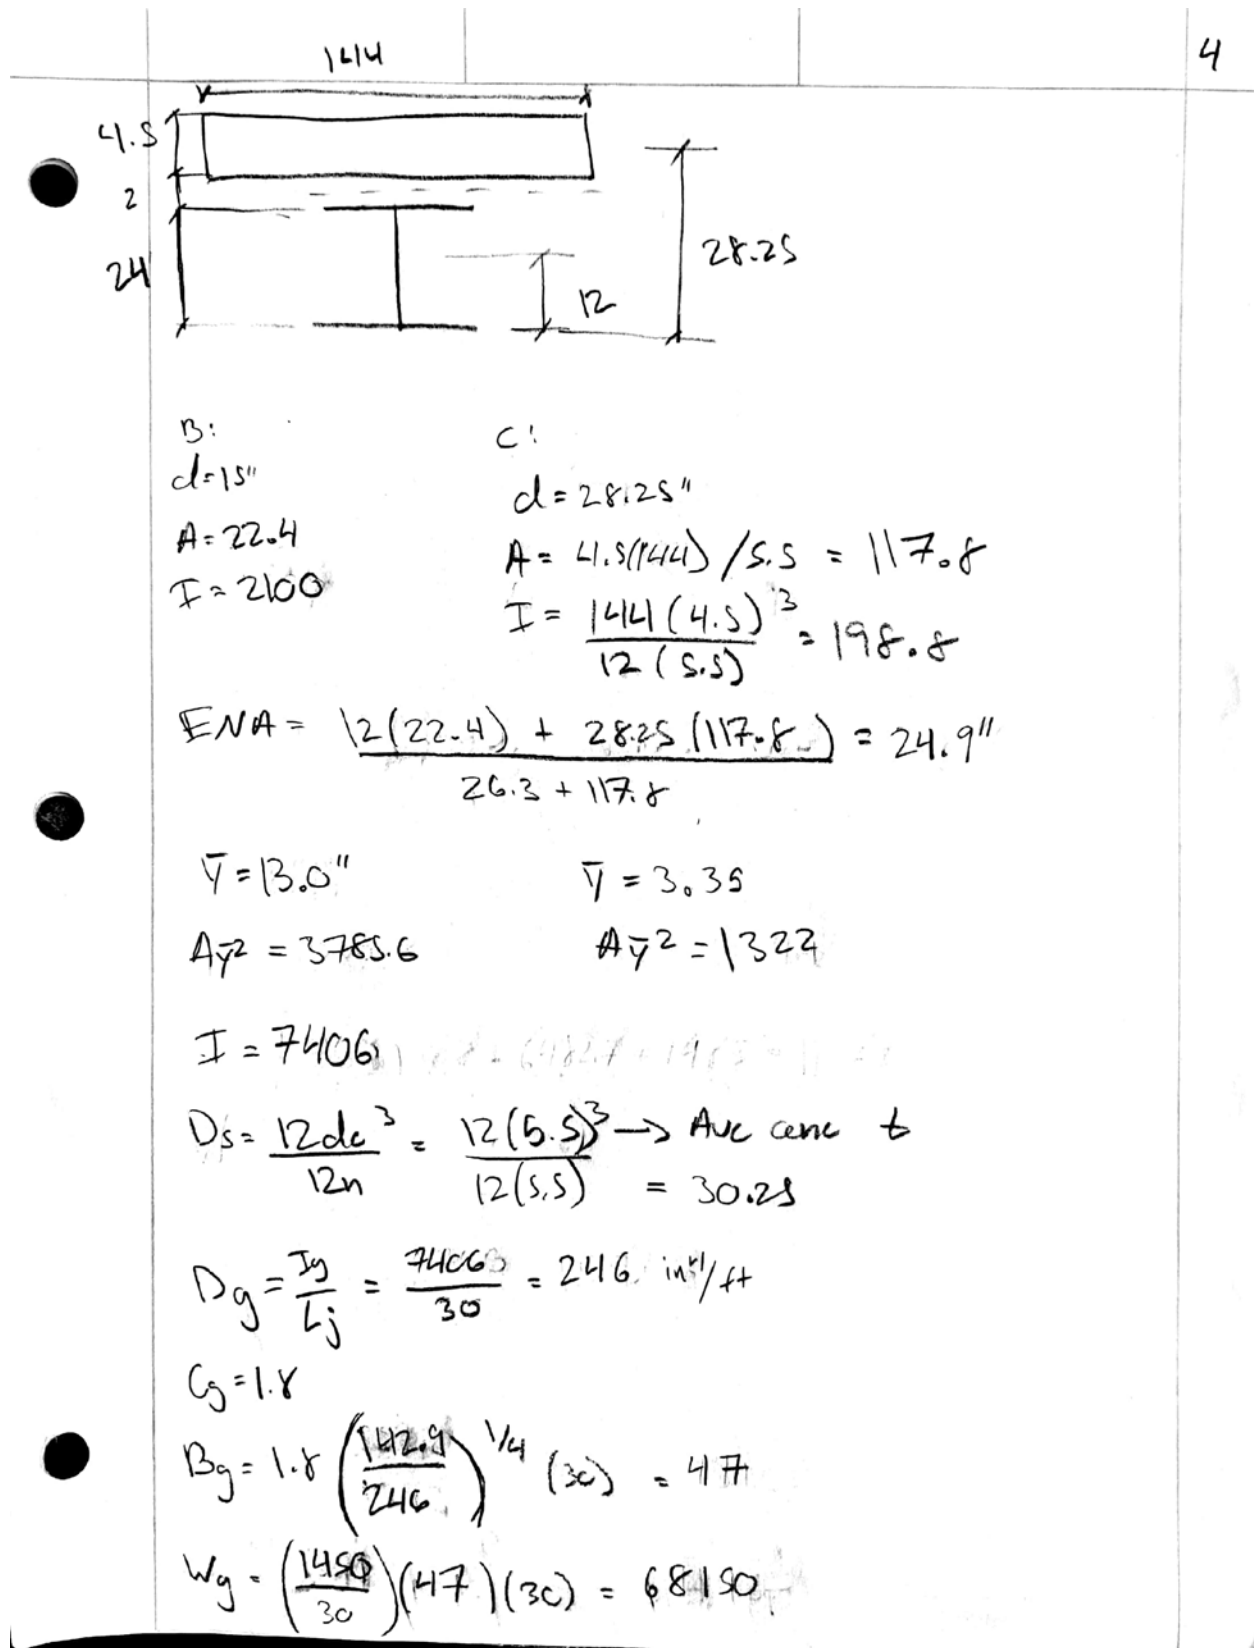 144
4
4.5
2
24
12
28.25
B: C:
d=15" d=28.25"
A=22.4 A= 4.5(144)/5.5 = 117.8
I=2100 I= 144(4.5)³/12(5.5) = 198.8
ENA= 12(22.4) + 28.25(117.8)/26.3+117.8 = 24.9"
ȳ=13.0" ȳ=3.35
Aȳ² = 3785.6 Aȳ² = 1322
I = 7406
Ds= 12dc³/12n = 12(5.5)³/12(5.5) → Ave conc t
= 30.25
Dg = Ig/Lj = 7406/30 = 246 in⁴/ft
Cg=1.8
Bg= 1.8 (142.9/246)^1/4 (30) = 47
Wg = (1450/30)(47)(30) = 68150